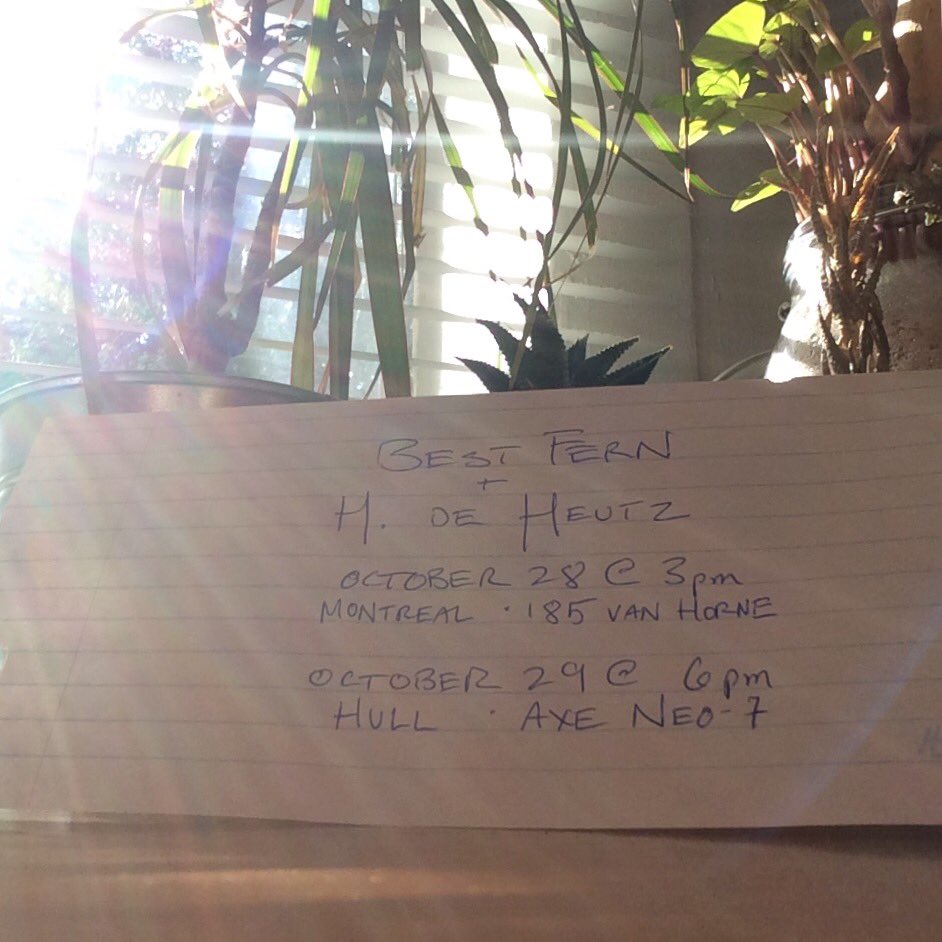 BEST FERN
+
H. DE HEUTZ
OCTOBER 28 @ 3pm
MONTREAL · 185 VAN HORNE
OCTOBER 29 @ 6pm
HULL · AXE NEO-7